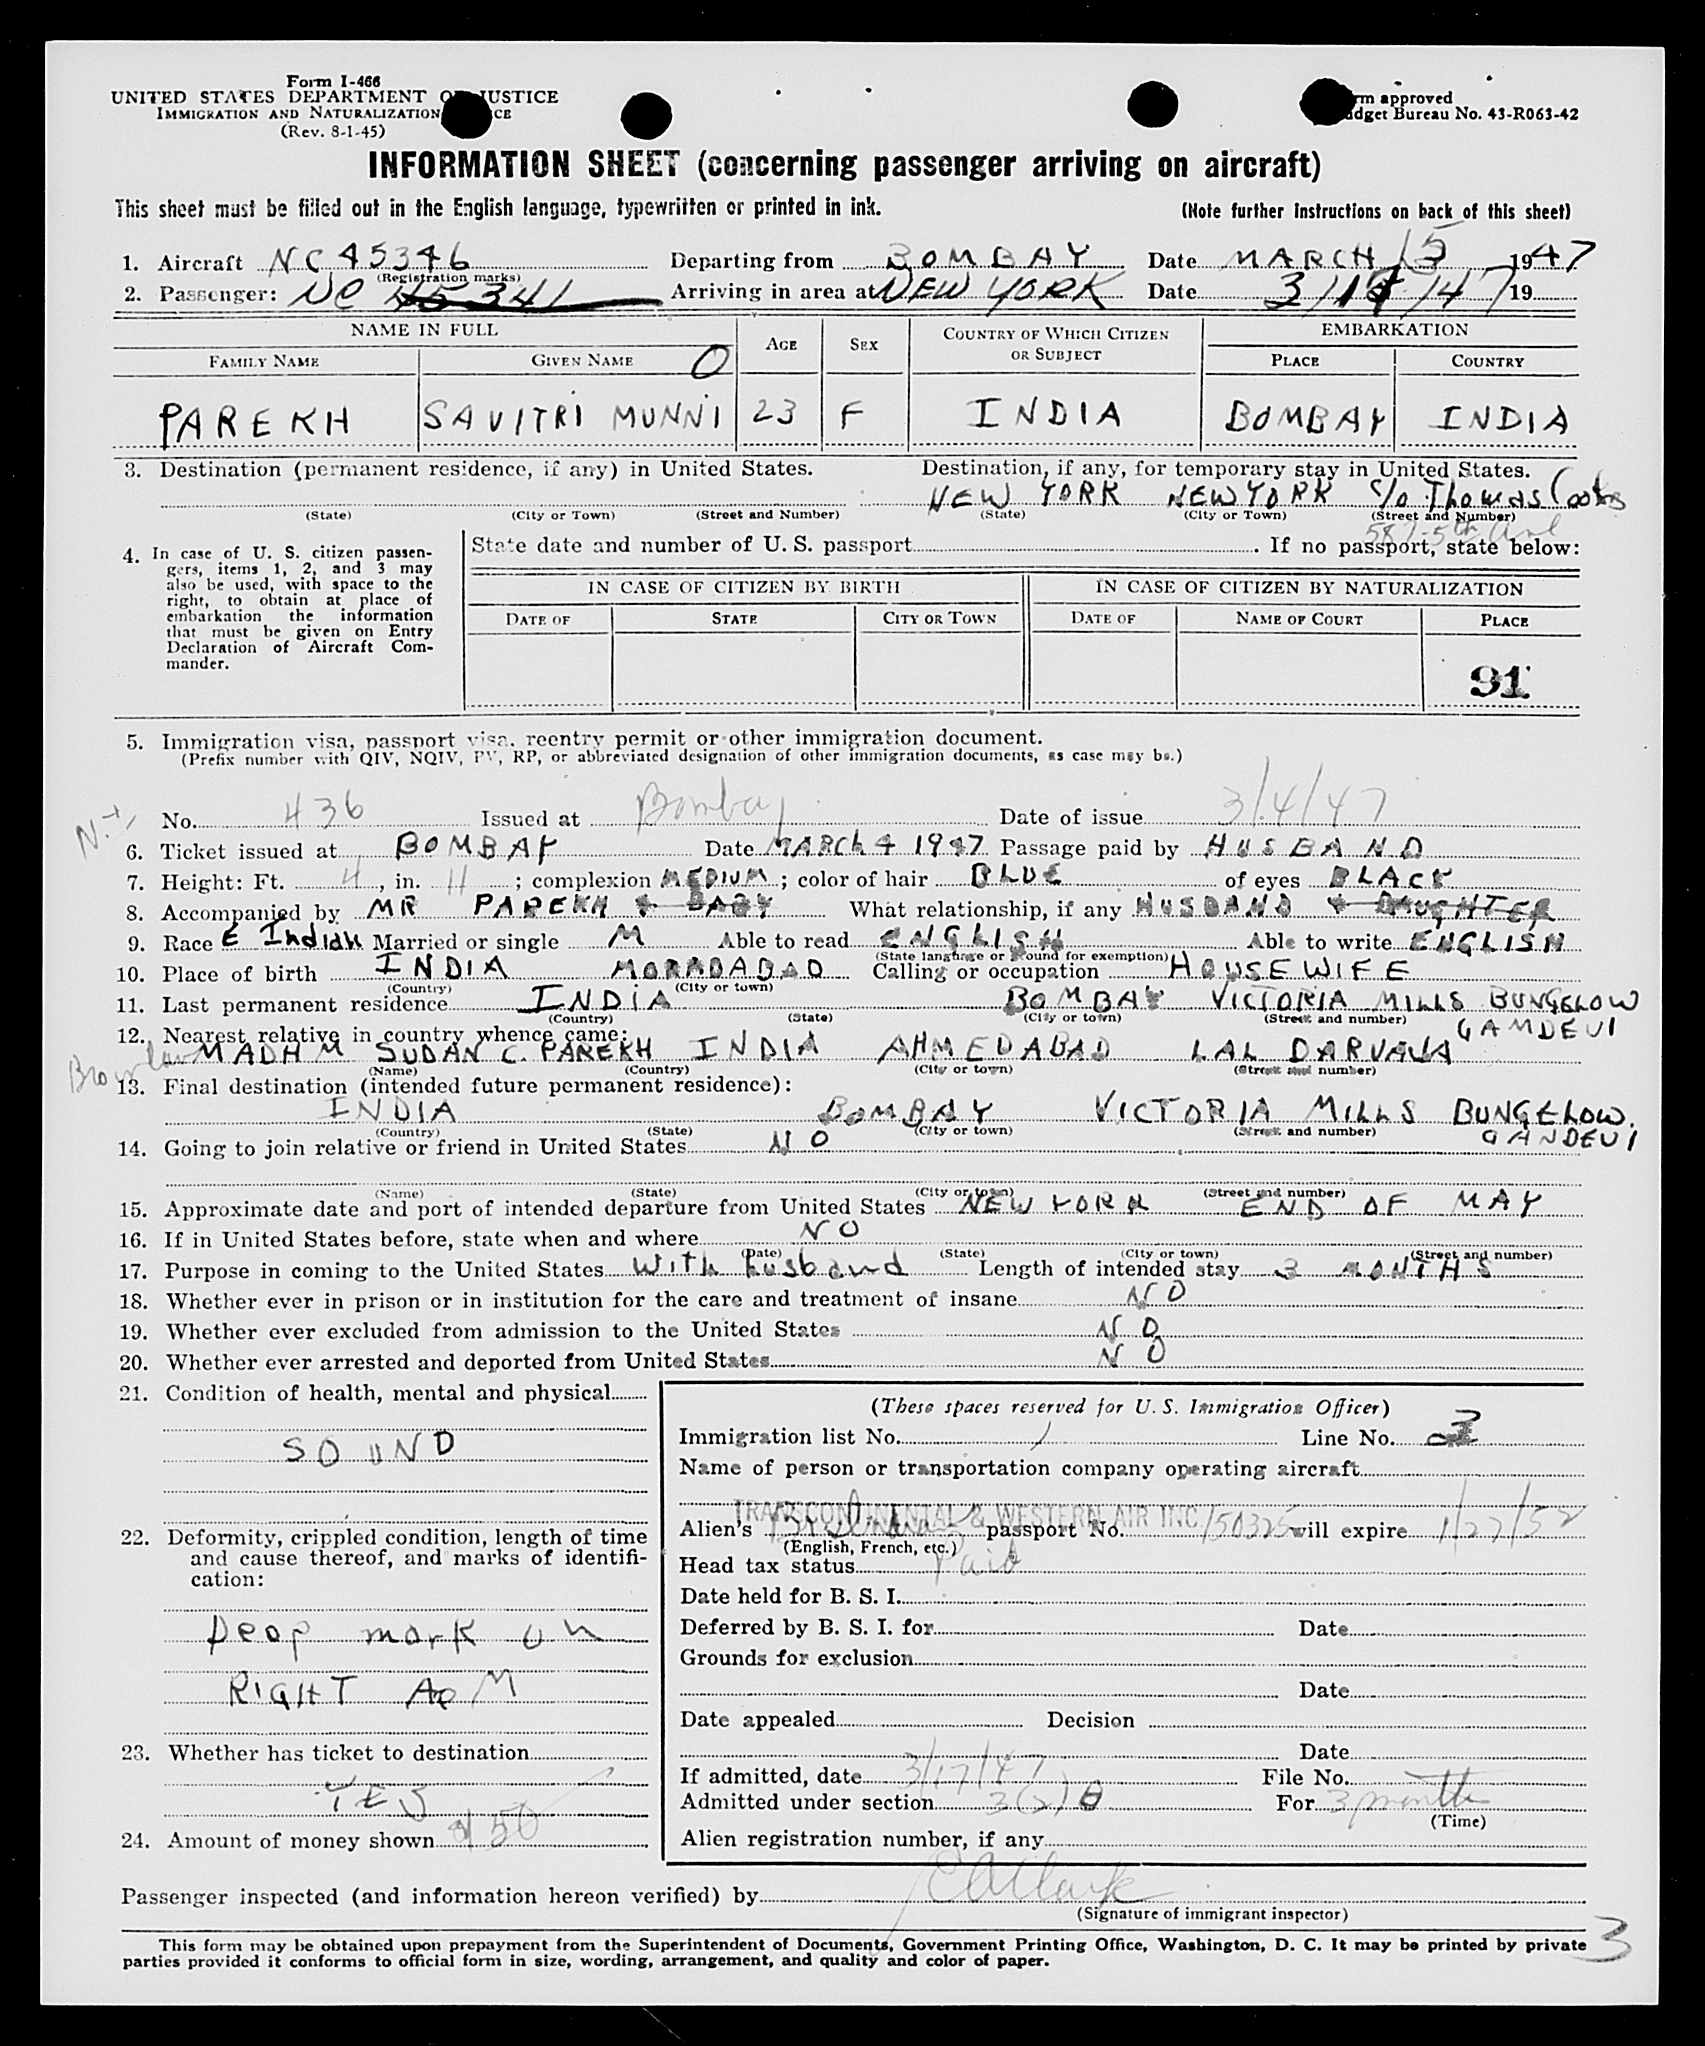 Form I-466
UNITED STATES DEPARTMENT OF JUSTICE
IMMIGRATION AND NATURALIZATION
(Rev. 8-1-45)
approved
Bureau No. 43-R063-42
INFORMATION SHEET (concerning passenger arriving on aircraft)
This sheet must be filled out in the English language, typewritten or printed in ink. (Note further instructions on back of this sheet)
1. Aircraft NC 45346 Departing from BOMBAY Date MARCH 15 1947
(Registration marks)
2. Passenger: NC 45341 Arriving in area at NEW YORK Date 3/17/47 19
NAME IN FULL AGE SEX COUNTRY OF WHICH CITIZEN OR SUBJECT EMBARKATION
FAMILY NAME GIVEN NAME O PLACE COUNTRY
PAREKH SAVITRI MUNNI 23 F INDIA BOMBAY INDIA
3. Destination (permanent residence, if any) in United States. Destination, if any, for temporary stay in United States.
NEW YORK NEW YORK C/O Thomas Cooks
(State) (City or Town) (Street and Number) (State) (City or Town) (Street and Number)
587-5th Ave
4. In case of U. S. citizen passen-
gers, items 1, 2, and 3 may
also be used, with space to the
right, to obtain at place of
embarkation the information
that must be given on Entry
Declaration of Aircraft Com-
mander.
State date and number of U. S. passport . If no passport, state below:
IN CASE OF CITIZEN BY BIRTH IN CASE OF CITIZEN BY NATURALIZATION
DATE OF STATE CITY OR TOWN DATE OF NAME OF COURT PLACE
91
5. Immigration visa, passport visa, reentry permit or other immigration document.
(Prefix number with QIV, NQIV, PV, RP, or abbreviated designation of other immigration documents, as case may be.)
No. 436 Issued at Bombay Date of issue 3/4/47
6. Ticket issued at BOMBAY Date MARCH 4 1947 Passage paid by HUSBAND
7. Height: Ft. 4, in. 11; complexion MEDIUM; color of hair BLUE of eyes BLACK
8. Accompanied by MR PAREKH & BABY What relationship, if any HUSBAND & DAUGHTER
9. Race E Indian Married or single M Able to read ENGLISH Able to write ENGLISH
(State language or ground for exemption)
10. Place of birth INDIA MORADABAD Calling or occupation HOUSEWIFE
(Country) (City or town)
11. Last permanent residence INDIA BOMBAY VICTORIA MILLS BUNGELOW
GAMDEVI
(Country) (State) (City or town) (Street and number)
12. Nearest relative in country whence came:
MADHM SUDAN C. PAREKH INDIA AHMEDABAD LAL DARVAJA
(Name) (Country) (City or town) (Street and number)
13. Final destination (intended future permanent residence):
INDIA BOMBAY VICTORIA MILLS BUNGELOW.
GANDEVI
(Country) (State) (City or town) (Street and number)
14. Going to join relative or friend in United States NO
(Name) (State) (City or town) (Street and number)
15. Approximate date and port of intended departure from United States NEW YORK END OF MAY
16. If in United States before, state when and where NO
(Date) (State) (City or town) (Street and number)
17. Purpose in coming to the United States With husband Length of intended stay 3 MONTHS
18. Whether ever in prison or in institution for the care and treatment of insane NO
19. Whether ever excluded from admission to the United States NO
20. Whether ever arrested and deported from United States NO
21. Condition of health, mental and physical
SOUND
22. Deformity, crippled condition, length of time
and cause thereof, and marks of identifi-
cation:
Deap mark on
RIGHT ARM
23. Whether has ticket to destination
YES
24. Amount of money shown 150
(These spaces reserved for U. S. Immigration Officer)
Immigration list No. 1 Line No. 3
Name of person or transportation company operating aircraft
TRANSCONTINENTAL & WESTERN AIR INC
Alien's passport No. 150325 will expire 1/27/52
(English, French, etc.)
Head tax status Paid
Date held for B. S. I.
Deferred by B. S. I. for Date
Grounds for exclusion
Date
Date appealed Decision
Date
If admitted, date 3/17/47 File No.
Admitted under section 3(2) For 3 months
(Time)
Alien registration number, if any
Passenger inspected (and information hereon verified) by
(Signature of immigrant inspector)
This form may be obtained upon prepayment from the Superintendent of Documents, Government Printing Office, Washington, D. C. It may be printed by private
parties provided it conforms to official form in size, wording, arrangement, and quality and color of paper.
3